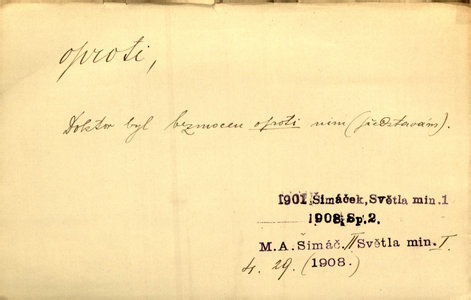 oproti,
Doktor byl bezmocen oproti nim (představám).
1901 Šimáček, Světla min. 1
1908, Sp. 2.
M. A. Šimáč. II Světla min. I.
4. 29. (1908.)